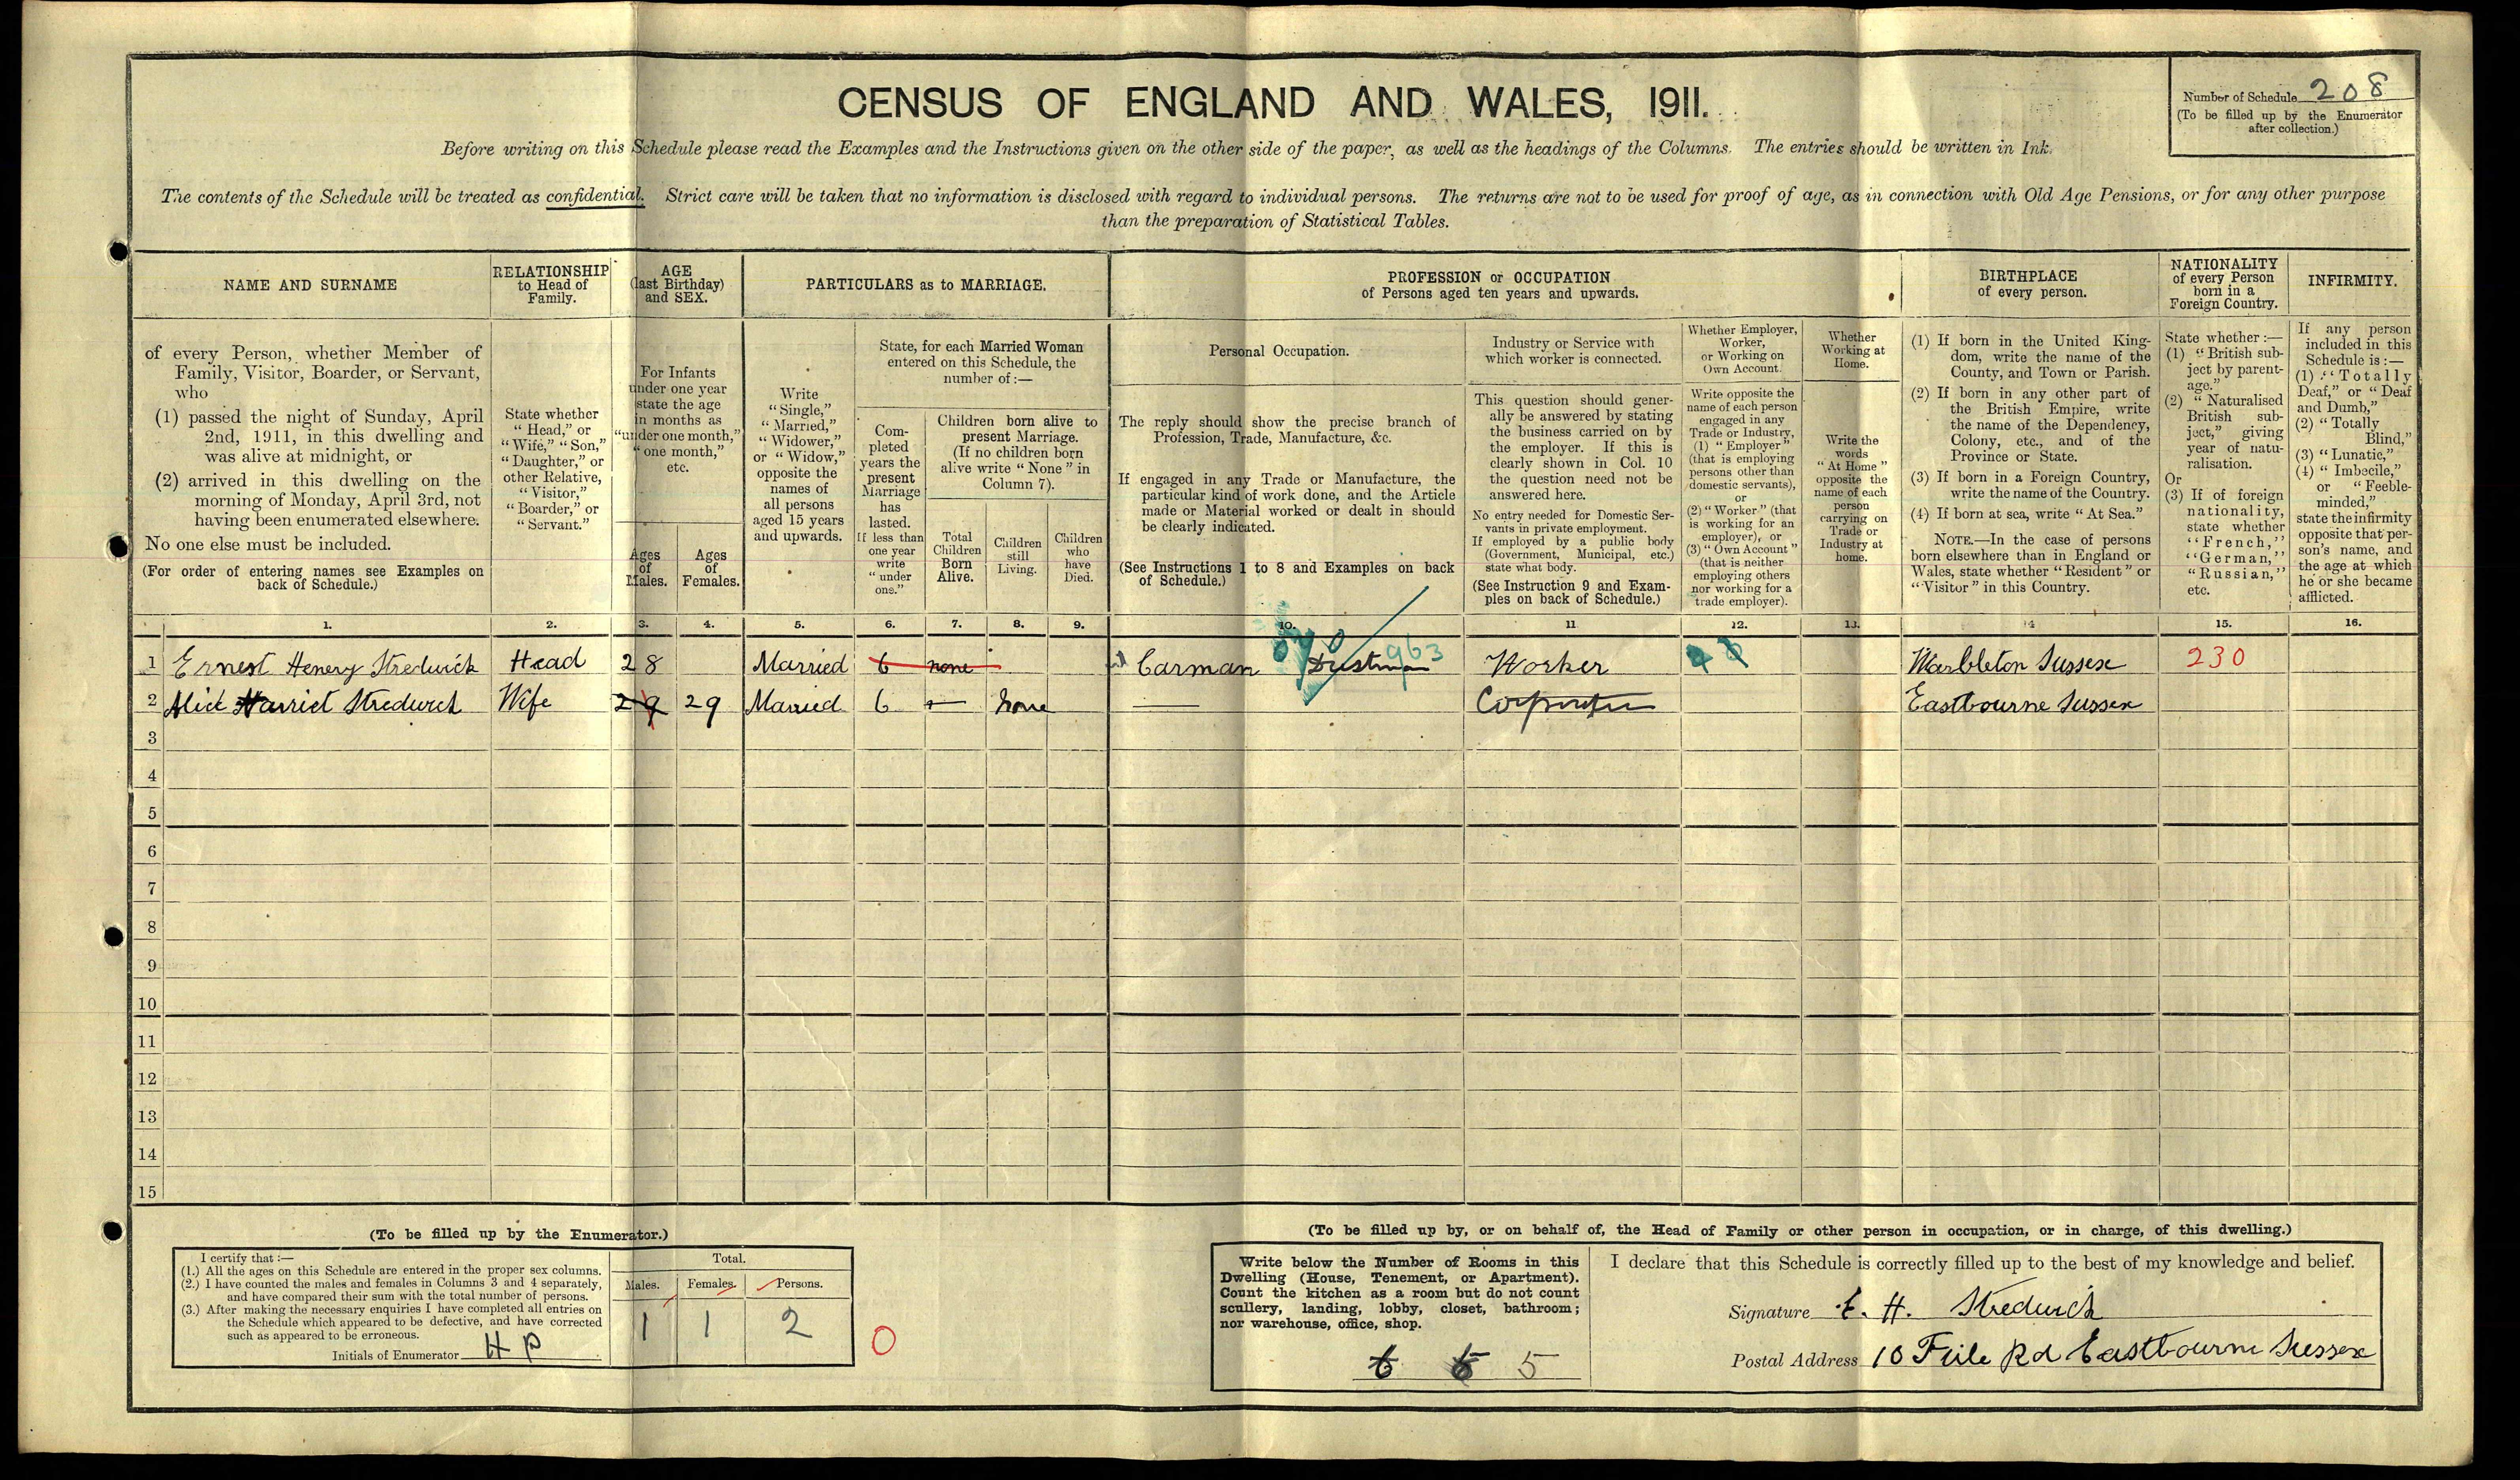 CENSUS OF ENGLAND AND WALES, 1911.
Number of Schedule 208
(To be filled up by the Enumerator
after collection.)
Before writing on this Schedule please read the Examples and the Instructions given on the other side of the paper, as well as the headings of the Columns. The entries should be written in Ink.
The contents of the Schedule will be treated as confidential. Strict care will be taken that no information is disclosed with regard to individual persons. The returns are not to be used for proof of age, as in connection with Old Age Pensions, or for any other purpose
than the preparation of Statistical Tables.
NAME AND SURNAME
of every Person, whether Member of
Family, Visitor, Boarder, or Servant,
who
(1) passed the night of Sunday, April
2nd, 1911, in this dwelling and
was alive at midnight, or
(2) arrived in this dwelling on the
morning of Monday, April 3rd, not
having been enumerated elsewhere.
No one else must be included.
(For order of entering names see Examples on
back of Schedule.)
RELATIONSHIP
to Head of
Family.
State whether
"Head," or
"Wife," "Son,"
"Daughter," or
other Relative,
"Visitor,"
"Boarder," or
"Servant."
AGE
(last Birthday)
and SEX.
For Infants
under one year
state the age
in months as
"under one month,"
"one month,"
etc.
Ages
of
Males.
Ages
of
Females.
PARTICULARS as to MARRIAGE.
Write
"Single,"
"Married,"
"Widower,"
or "Widow,"
opposite the
names of
all persons
aged 15 years
and upwards.
State, for each Married Woman
entered on this Schedule, the
number of:—
Com-
pleted
years the
present
Marriage
has
lasted.
If less than
one year
write
"under
one."
Children born alive to
present Marriage.
(If no children born
alive write "None" in
Column 7).
Total
Children
Born
Alive.
Children
still
Living.
Children
who
have
Died.
PROFESSION or OCCUPATION
of Persons aged ten years and upwards.
Personal Occupation.
The reply should show the precise branch of
Profession, Trade, Manufacture, &c.
If engaged in any Trade or Manufacture, the
particular kind of work done, and the Article
made or Material worked or dealt in should
be clearly indicated.
(See Instructions 1 to 8 and Examples on back
of Schedule.)
Industry or Service with
which worker is connected.
This question should gener-
ally be answered by stating
the business carried on by
the employer. If this is
clearly shown in Col. 10
the question need not be
answered here.
No entry needed for Domestic Ser-
vants in private employment.
If employed by a public body
(Government, Municipal, etc.)
state what body.
(See Instruction 9 and Exam-
ples on back of Schedule.)
Whether Employer,
Worker,
or Working on
Own Account.
Write opposite the
name of each person
engaged in any
Trade or Industry,
(1) "Employer"
(that is employing
persons other than
domestic servants),
or
(2) "Worker" (that
is working for an
employer), or
(3) "Own Account"
(that is neither
employing others
nor working for a
trade employer).
Whether
Working at
Home.
Write the
words
"At Home"
opposite the
name of each
person
carrying on
Trade or
Industry at
home.
BIRTHPLACE
of every person.
(1) If born in the United King-
dom, write the name of the
County, and Town or Parish.
(2) If born in any other part of
the British Empire, write
the name of the Dependency,
Colony, etc., and of the
Province or State.
(3) If born in a Foreign Country,
write the name of the Country.
(4) If born at sea, write "At Sea."
NOTE.—In the case of persons
born elsewhere than in England or
Wales, state whether "Resident" or
"Visitor" in this Country.
NATIONALITY
of every Person
born in a
Foreign Country.
State whether:—
(1) "British sub-
ject by parent-
age."
(2) "Naturalised
British sub-
ject," giving
year of natu-
ralisation.
Or
(3) If of foreign
nationality,
state whether
"French,"
"German,"
"Russian,"
etc.
INFIRMITY.
If any person
included in this
Schedule is:—
(1) "Totally
Deaf," or "Deaf
and Dumb,"
(2) "Totally
Blind,"
(3) "Lunatic,"
(4) "Imbecile,"
or "Feeble-
minded,"
state the infirmity
opposite that per-
son's name, and
the age at which
he or she became
afflicted.
1. 2. 3. 4. 5. 6. 7. 8. 9. 10. 11 12. 13. 14 15. 16.
1 Ernest Henery Stredwick Head 28 Married 6 none Carman Dustman 963 Worker Warbleton Sussex 230
2 Alice Harriet Stredwick Wife 29 29 Married 6 — none — Corporation Eastbourne Sussex
3
4
5
6
7
8
9
10
11
12
13
14
15
(To be filled up by the Enumerator.)
I certify that:—
(1.) All the ages on this Schedule are entered in the proper sex columns.
(2.) I have counted the males and females in Columns 3 and 4 separately,
and have compared their sum with the total number of persons.
(3.) After making the necessary enquiries I have completed all entries on
the Schedule which appeared to be defective, and have corrected
such as appeared to be erroneous.
Initials of Enumerator H P
Total.
Males. Females. Persons.
1 1 2
0
(To be filled up by, or on behalf of, the Head of Family or other person in occupation, or in charge, of this dwelling.)
Write below the Number of Rooms in this
Dwelling (House, Tenement, or Apartment).
Count the kitchen as a room but do not count
scullery, landing, lobby, closet, bathroom;
nor warehouse, office, shop.
6 6 5
I declare that this Schedule is correctly filled up to the best of my knowledge and belief.
Signature E. H. Stredwick
Postal Address 10 Rd Eastbourne Sussex